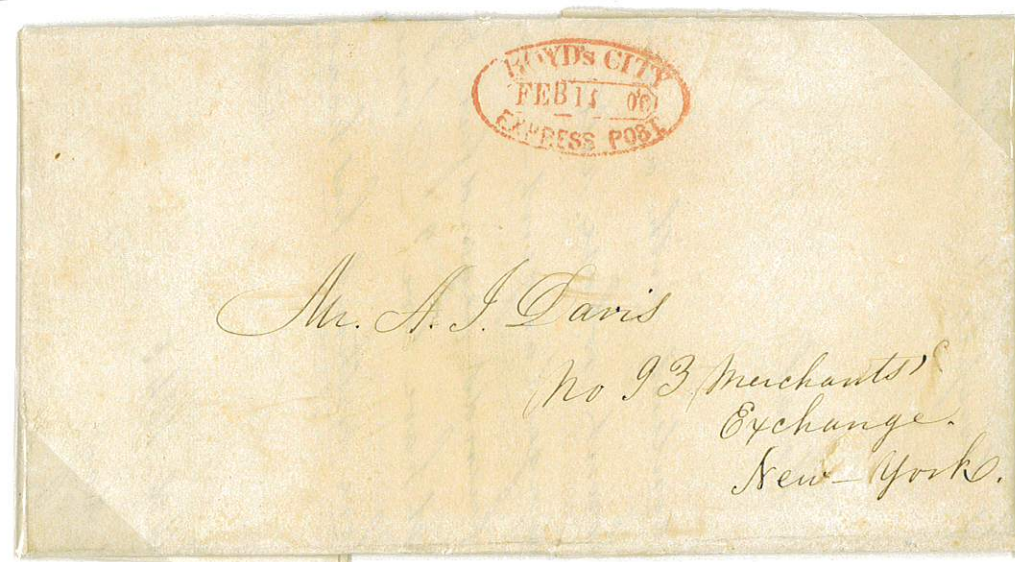 BOYD's CITY
FEB 11
EXPRESS POST
Mr. A. J. Davis
No 93 Merchants'
Exchange.
New-York.